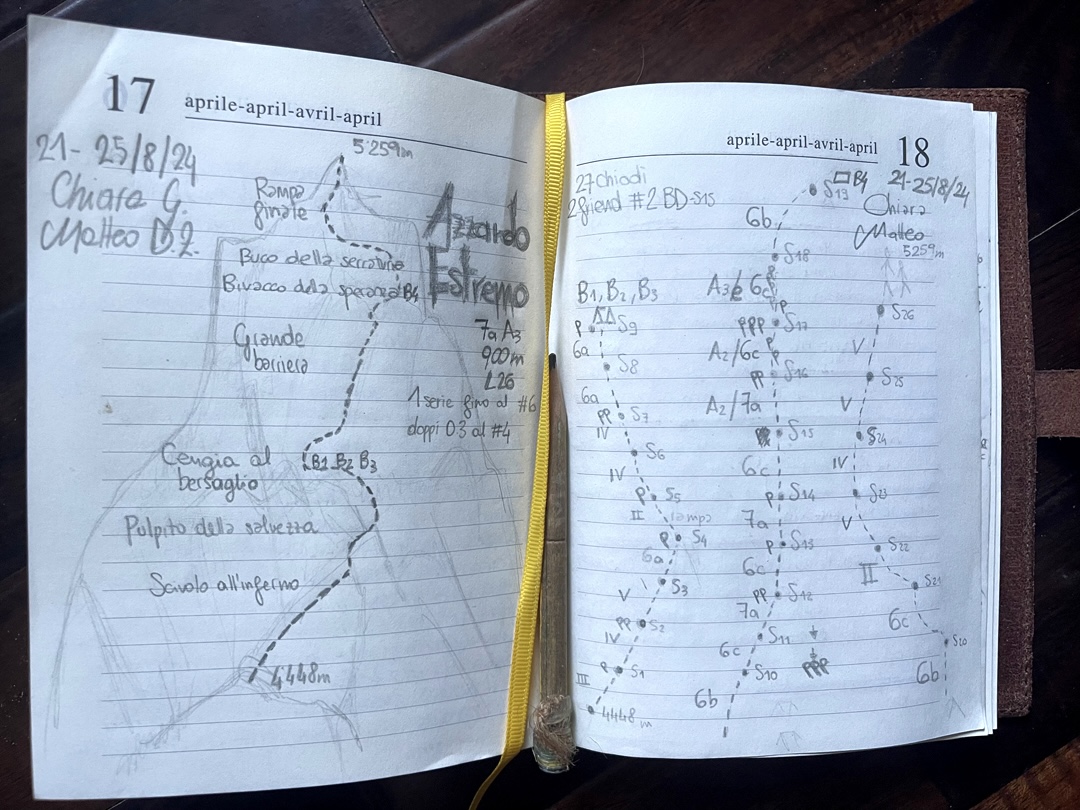 17
aprile-april-avril-april
21-25/8/24
Chiara G.
Matteo D.Z.
5'259m
Rampa
finale
Buco della serratura
Bivacco della speranza B4
Azzardo
Estremo
7a A3
900m
L26
1 serie fino al #6
doppi 0.3 al #4
Grande
barriera
Cengia al
bersaglio
B1 B2 B3
Pulpito della salvezza
Scivolo all'inferno
4448m
aprile-april-avril-april
18
27 Chiodi
2 friend #2 BD-S15
B1, B2, B3
P
S9
6a
S8
6a
PP
S7
IV
S6
IV
P
S5
II
rampa
P
S4
6a
S3
V
PP
S2
IV
P
S1
III
4448m
S19
B4
6b
S18
A3 e 6c
P
PPP
S17
A2/6c
PP
S16
A2/7a
S15
6c
P
S14
7a
P
S13
6c
PP
S12
7a
S11
6c
PPP
S10
6b
21-25/8/24
Chiara
Matteo
5259m
S26
V
S25
V
S24
IV
S23
V
S22
II
S21
6c
S20
6b